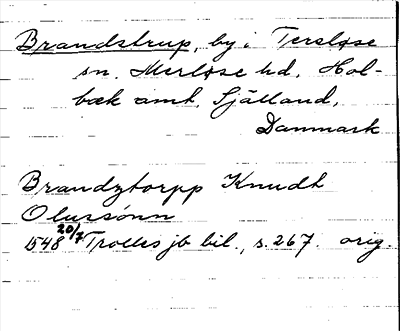 Brandstrup, by i Tersløse
sn. Merløse hd, Hol-
bæk amt, Själland,
Danmark
Brandztorpp Knudh
Olussønn
1548 20/7 Trolles jb bil., s. 267. orig.